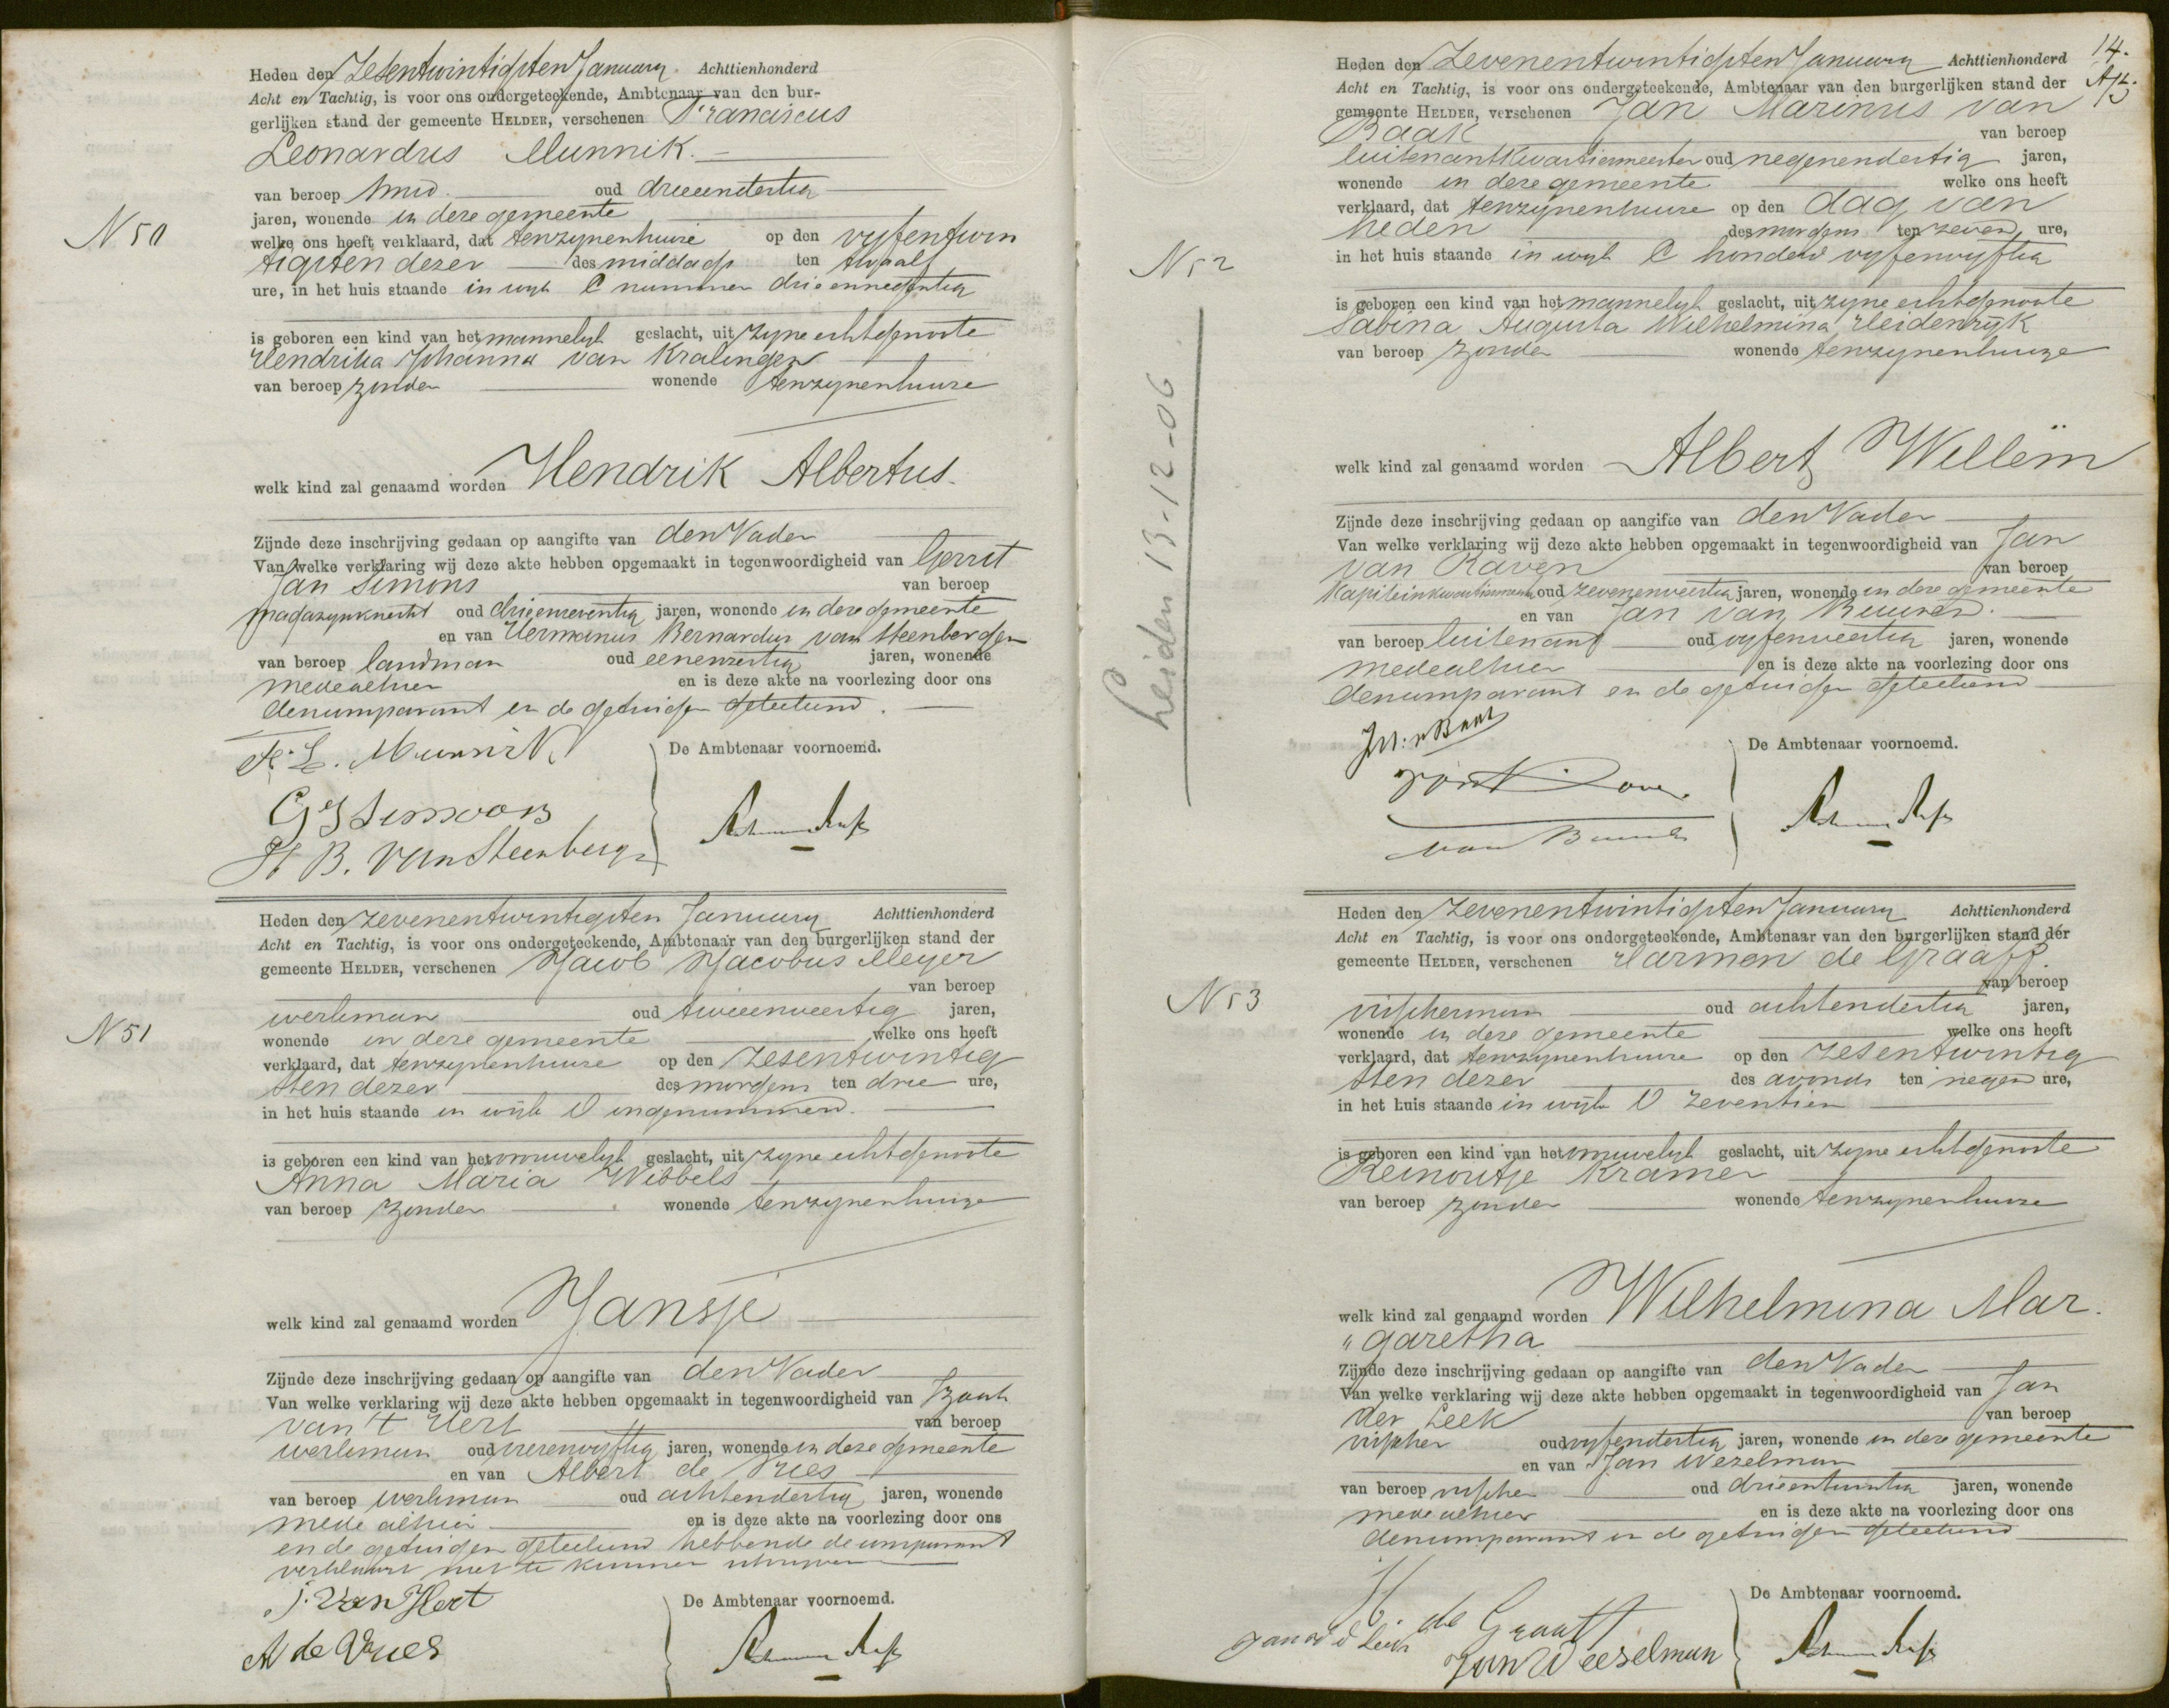 Heden den Zesentwintigsten January. Achttienhonderd
Acht en Tachtig, is voor ons ondergeteekende, Ambtenaar van den bur-
gerlijken stand der gemeente HELDER, verschenen Franciscus
Leonardus Munnik.
van beroep smid. oud drieendertig
jaren, wonende in deze gemeente
N 50
welke ons heeft verklaard, dat tenzynenhuize op den vyfentwin
tigsten dezer des middags ten twaalf
ure, in het huis staande in wyk C nummer drieennegentig
is geboren een kind van het mannelyk geslacht, uit zyne echtgenoote
Hendrika Johanna van Kralingen
van beroep zonder wonende tenzynenhuize
welk kind zal genaamd worden Hendrik Albertus.
Zijnde deze inschrijving gedaan op aangifte van den Vader
Van welke verklaring wij deze akte hebben opgemaakt in tegenwoordigheid van Gerrit
Jan Simons van beroep
magazynknecht oud drieenzeventig jaren, wonende in deze gemeente
en van Hermanus Bernardus van Steenbergen
van beroep landman oud eenenzestig jaren, wonende
medealhier en is deze akte na voorlezing door ons
den comparant en de getuigen geteekend.
F. L. Munnik
De Ambtenaar voornoemd.
G J Simons
H B. van Steenbergen
Heden den zevenentwintigsten January Achttienhonderd
Acht en Tachtig, is voor ons ondergeteekende, Ambtenaar van den burgerlijken stand der
gemeente HELDER, verschenen Jacob Jacobus Meyer
van beroep
werkman oud tweeenveertig jaren,
N 51
wonende in deze gemeente welke ons heeft
verklaard, dat tenzynenhuize op den zesentwintig
sten dezer des morgens ten drie ure,
in het huis staande in wijk O ongenummerd.
is geboren een kind van het vrouwelyk geslacht, uit zyne echtgenoote
Anna Maria Wibbels
van beroep zonder wonende tenzynenhuize
welk kind zal genaamd worden Jansje
Zijnde deze inschrijving gedaan op aangifte van den Vader
Van welke verklaring wij deze akte hebben opgemaakt in tegenwoordigheid van Izaak
van 't Hert van beroep
werkman oud vierenvyftig jaren, wonende in deze gemeente
en van Albert de Vries
van beroep werkman oud achtendertig jaren, wonende
mede alhier en is deze akte na voorlezing door ons
en de getuigen geteekend hebbende de comparant
verklaard niet te kunnen schryven
J. van Hert
De Ambtenaar voornoemd.
A de Vries
14.
Heden den Zevenentwintigsten January Achttienhonderd
Acht en Tachtig, is voor ons ondergeteekende, Ambtenaar van den burgerlijken stand der
gemeente HELDER, verschenen Jan Marinus van
Baak van beroep
luitenantkwartiermeester oud negenendertig jaren,
wonende in deze gemeente welke ons heeft
verklaard, dat tenzynenhuize op den dag van
heden des morgens ten zeven ure,
N 52
in het huis staande in wyk C honderd vyfenvyftig
is geboren een kind van het mannelyk geslacht, uit zyne echtgenoote
Sabina Augusta Wilhelmina Heidenryk
van beroep zonder wonende tenzynenhuize
Leiden 13-12-06
welk kind zal genaamd worden Albert Willem
Zijnde deze inschrijving gedaan op aangifte van den Vader
Van welke verklaring wij deze akte hebben opgemaakt in tegenwoordigheid van Jan
van Raven van beroep
Kapiteinkwartiermeester oud zevenenveertig jaren, wonende in deze gemeente
en van Jan van Buuren.
van beroep luitenant oud vyfenveertig jaren, wonende
medealhier en is deze akte na voorlezing door ons
den comparant en de getuigen geteekend
De Ambtenaar voornoemd.
Heden den Zevenentwintigsten January Achttienhonderd
Acht en Tachtig, is voor ons ondergeteekende, Ambtenaar van den burgerlijken stand der
gemeente HELDER, verschenen Harmen de Graaff.
van beroep
N 53
visscherman oud achtendertig jaren,
wonende in deze gemeente welke ons heeft
verklaard, dat tenzynenhuize op den zesentwintig
sten dezer des avonds ten negen ure,
in het huis staande in wyk O zeventien
is geboren een kind van het vrouwelyk geslacht, uit zyne echtgenoote
Reinoutje Kramer
van beroep zonder wonende tenzynenhuize
welk kind zal genaamd worden Wilhelmina Mar.
" garetha
Zijnde deze inschrijving gedaan op aangifte van den Vader
Van welke verklaring wij deze akte hebben opgemaakt in tegenwoordigheid van Jan
der Leek van beroep
visscher oud vyfendertig jaren, wonende in deze gemeente
en van Jan Wezelman
van beroep visscher oud drieentwintig jaren, wonende
mede alhier en is deze akte na voorlezing door ons
den comparant en de getuigen geteekend
De Ambtenaar voornoemd.
H de Graaff
Jan Weeselman